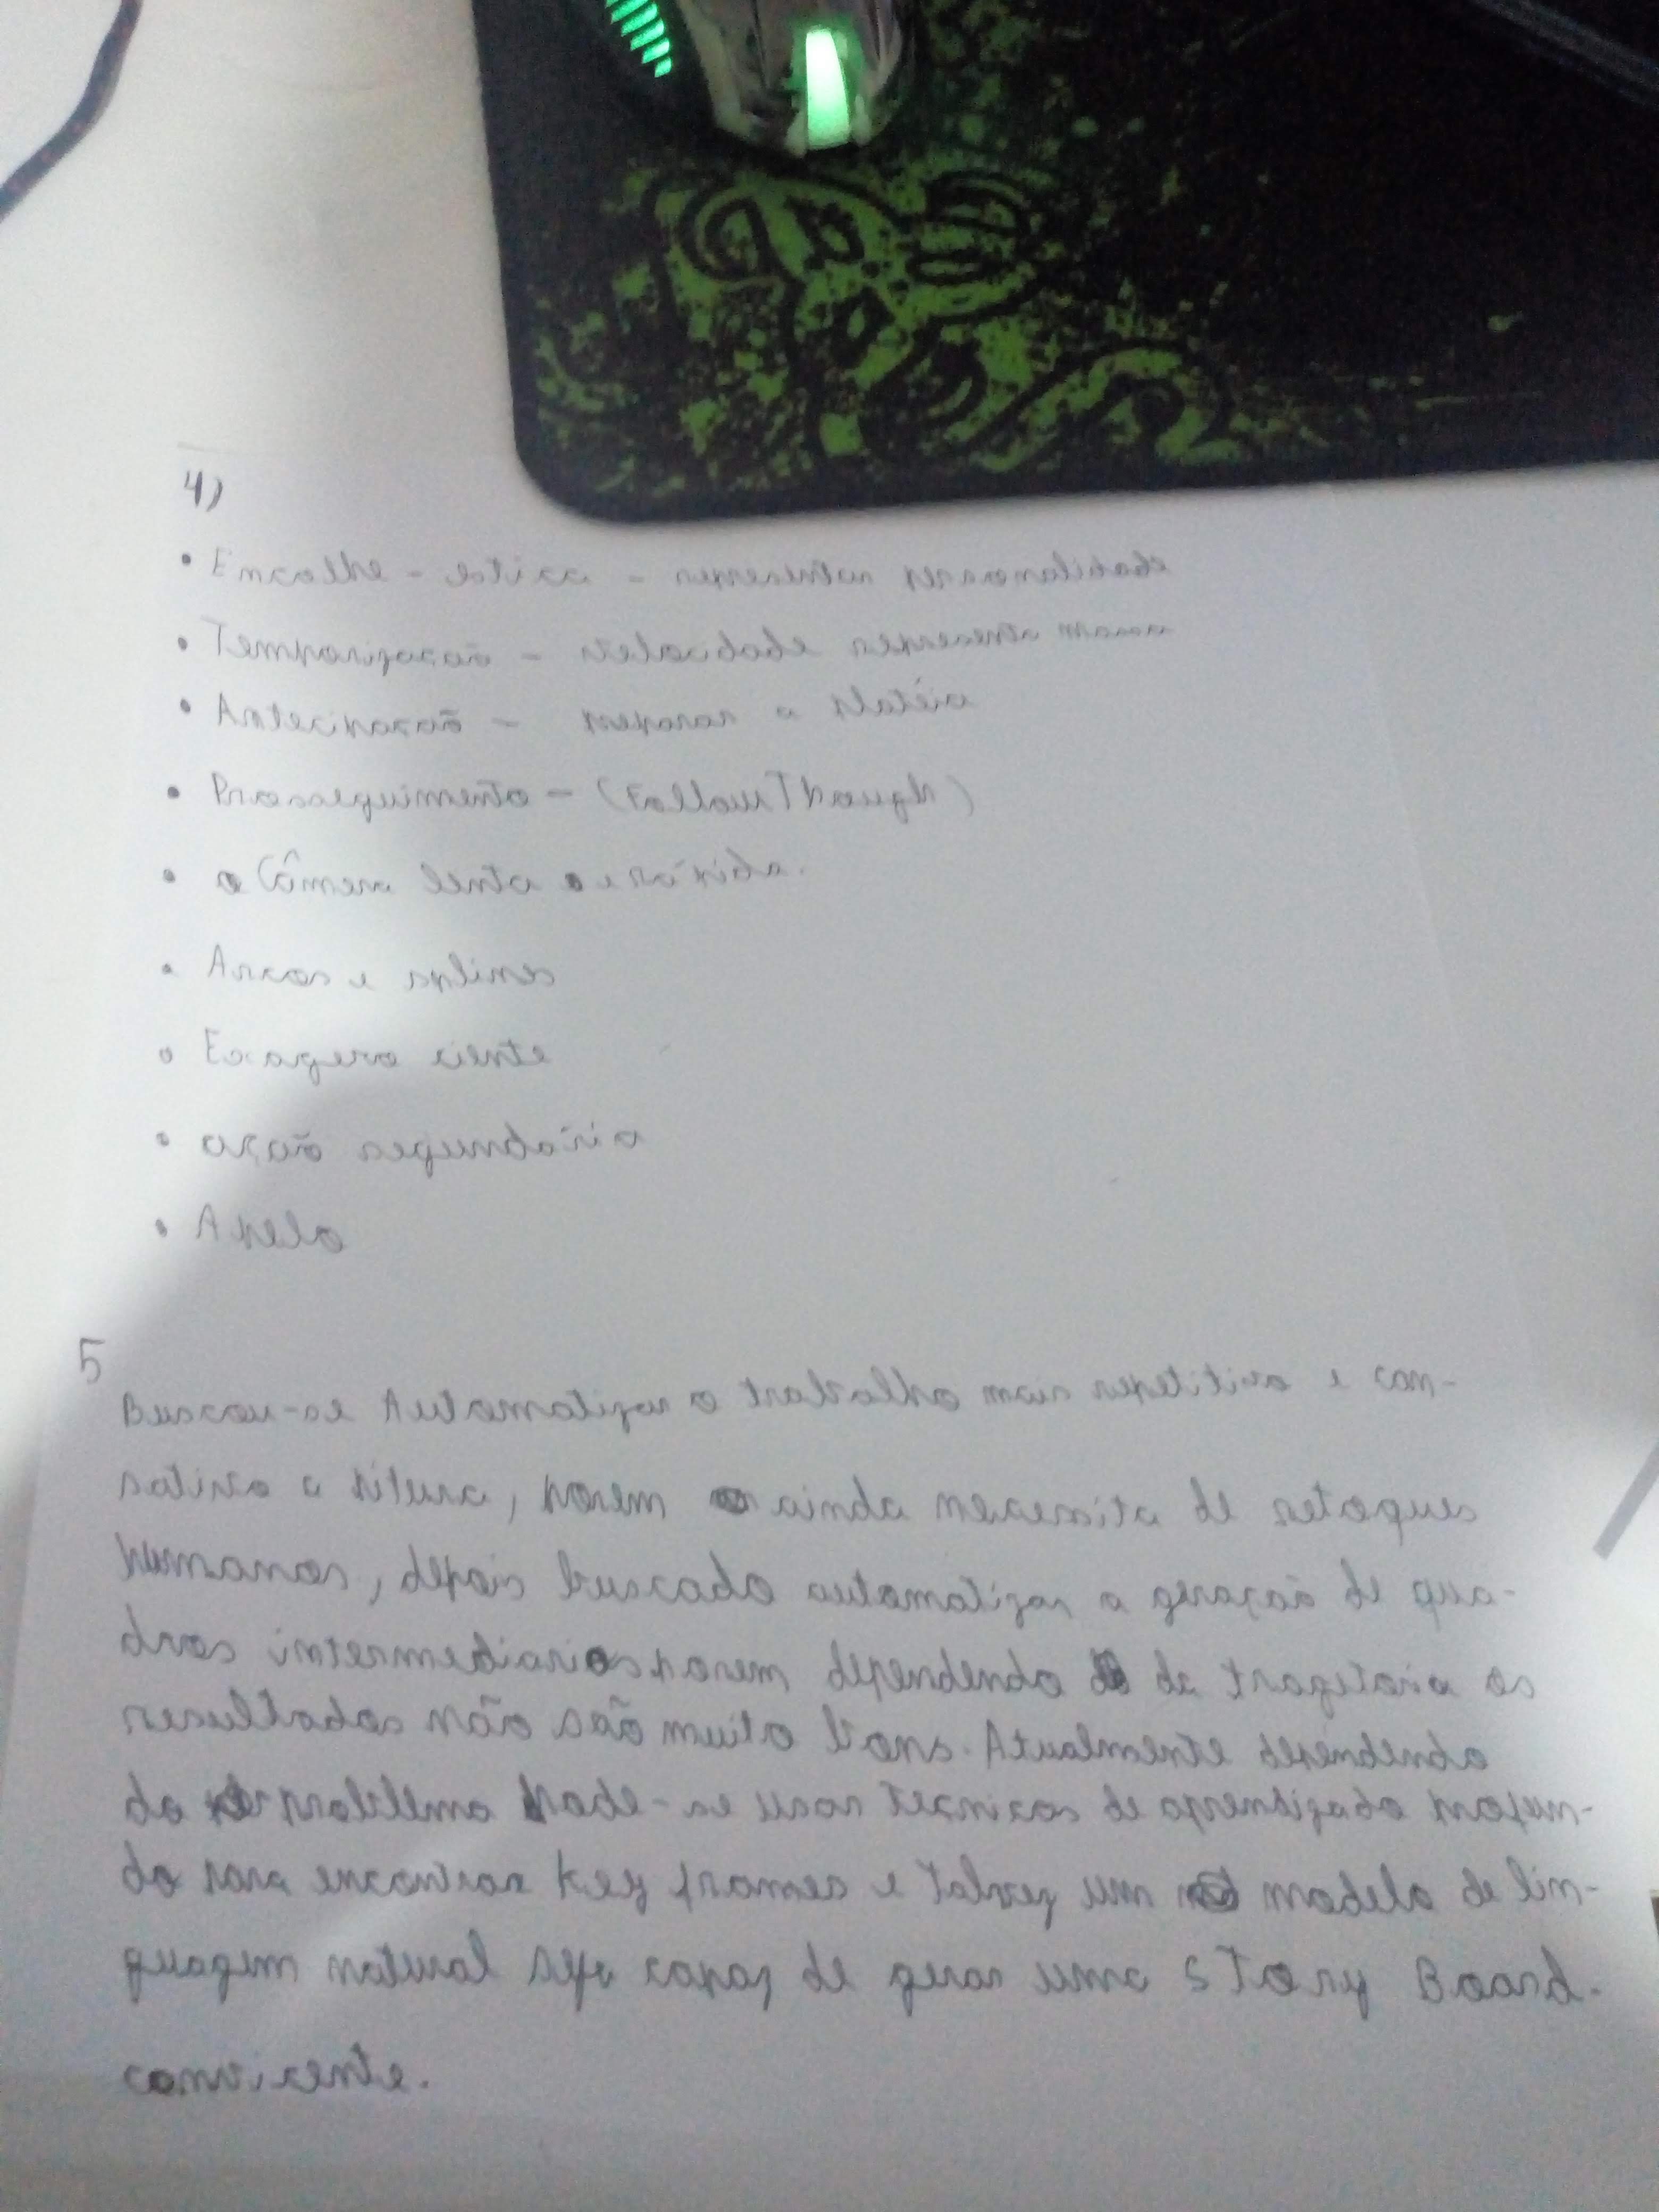 4)
• Encolhe - estica - representar personalidade
• Temporização - velocidade representa massa
• Antecipação - preparar a platéia
• Prosseguimento - (Follow Through)
• Câmera lenta e rápida.
• Arcos e splines
• Exagero ciente
• ação secundária
• Apelo
5
Buscou-se Automatizar o trabalho mais repetitivo e
a pitura, porem ainda necessita de retoques
humanos, depois buscado automatizar a geração de qua-
dros intermediarios porem dependendo da trajetoria os
resultados não são muito bons. Atualmente dependendo
do problema pode-se usar tecnicas de aprendizado profun-
do para encontrar key frames e talvez um modelo de lin-
guagem natural seja capaz de gerar uma Story Board
convincente.